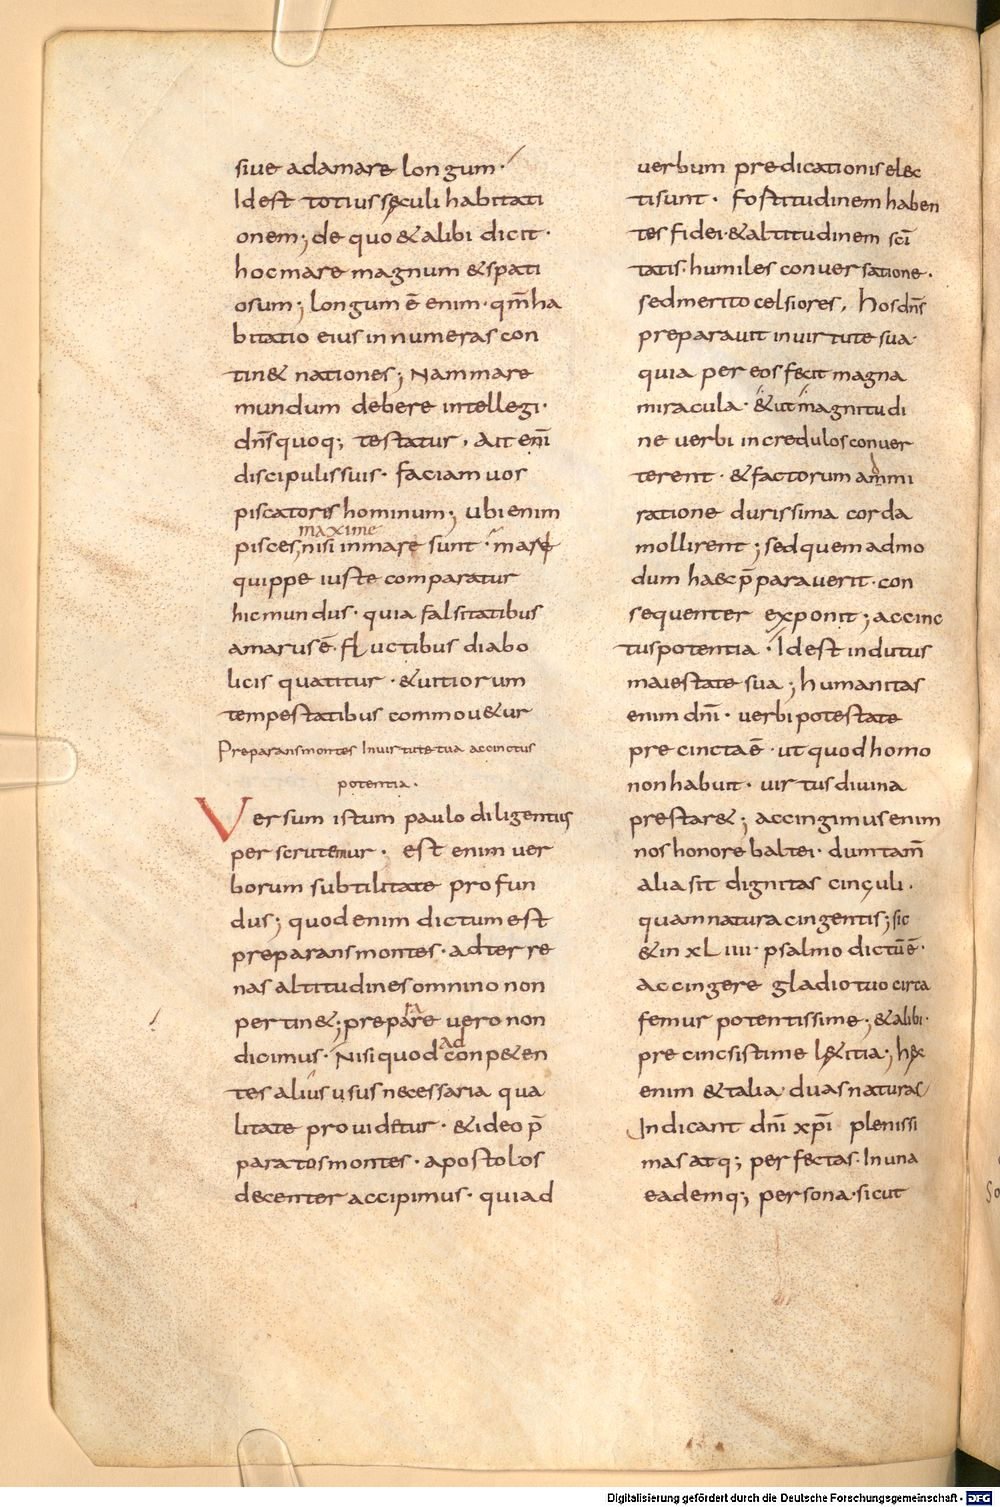 siue adamare longum·
Id est totius sęculi habitati
onem; de quo & alibi dicit·
hoc mare magnum & spati
osum; longum ē enim· qm̄ ha
bitatio eius innumeras con
tin& nationes; Nam mare
mundum debere intellegi·
dn̄s quoq; testatur, Ait eni̅
discipulis suis· faciam uos
piscatores hominum; ubi enim
maxime
pisces, nisi in mare sunt· mare
quippe iuste comparatur
hic mundus· quia falsitatibus
amarus ē· fluctibus diabo
licis quatitur· & uitiorum
tempestatibus commou&ur
Preparans montes In uirtute tua accinctus
potentia·
Versum istum paulo diligentius
perscrutemur· est enim uer
borum subtilitate profun
dus; quod enim dictum est
preparans montes· ad terre
nas altitudines omnino non
pertin&; prepare uero non
dicimus· Nisi quod ad conpetен
tes alius usus necessaria qua
litate prouidetur· & ideo p̄
paratos montes· apostolos
decenter accipimus· qui ad
uerbum predicationis elec
ti sunt· Fortitudinem haben
tes fidei· & altitudinem sci̅
tatis· humiles conuersatione·
sed merito celsiores, hos dn̄s
preparauit in uirtute sua·
quia per eos fecit magna
miracula· & ut magnitudi
ne uerbi incredulos conuer
terent· & factorum ammi
ratione durissima corda
mollirent; sed quemadmo
dum haec p̄parauerit· con
sequenter exponit; accinc
tus potentia· Id est indutus
maiestate sua; humanitas
enim dn̄i· uerbi potestate
precincta ē· ut quod homo
non habuit· uirtus diuina
prestar&; accingimus enim
nos honore baltei· dum tam̄
alia sit dignitas cinguli·
quam natura cingentis; sic
& in xLIIII· psalmo dictū ē·
accingere gladio tuo circa
femur potentissime; & alibi·
precincsisti me lętitia; hęc
enim & talia· duas naturas
Indicant dn̄i xp̄i plenissi
mas atq; perfectas· In una
eademq; persona· sicut
Digitalisierung gefördert durch die Deutsche Forschungsgemeinschaft - DFG